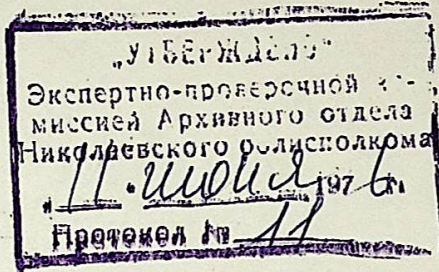 „УТВЕРЖДЕНО“
Экспертно-проверочной ко-
миссией Архивного отдела
Николаевского облисполкома
"11" июня 1976 г.
Протокол № 11